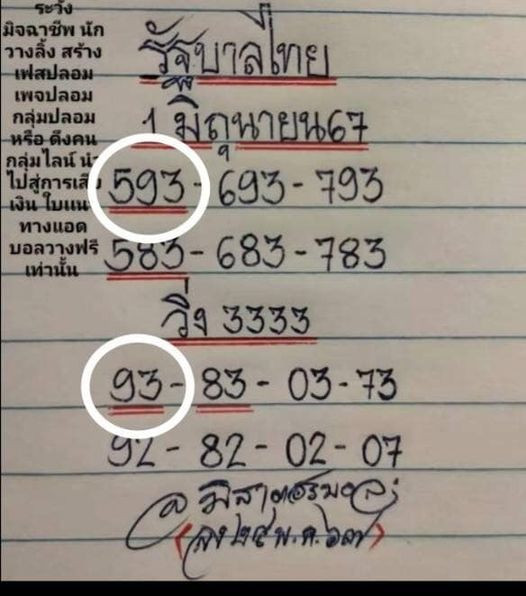 ระวัง
มิจฉาชีพ นัก
วางลิ้ง สร้าง
เฟสปลอม
เพจปลอม
กลุ่มปลอม
หรือ ดึงคน
กลุ่มไลน์
ไปสู่การเสีย
เงิน ใบแน
ทางแอด
บอลวางฟรี
เท่านั้น
รัฐบาลไทย
1 มิถุนายน 67
593 - 693 - 793
583 - 683 - 783
วิ่ง 3333
93 - 83 - 03 - 73
92 - 82 - 02 - 07
พ.ค. ๖๗